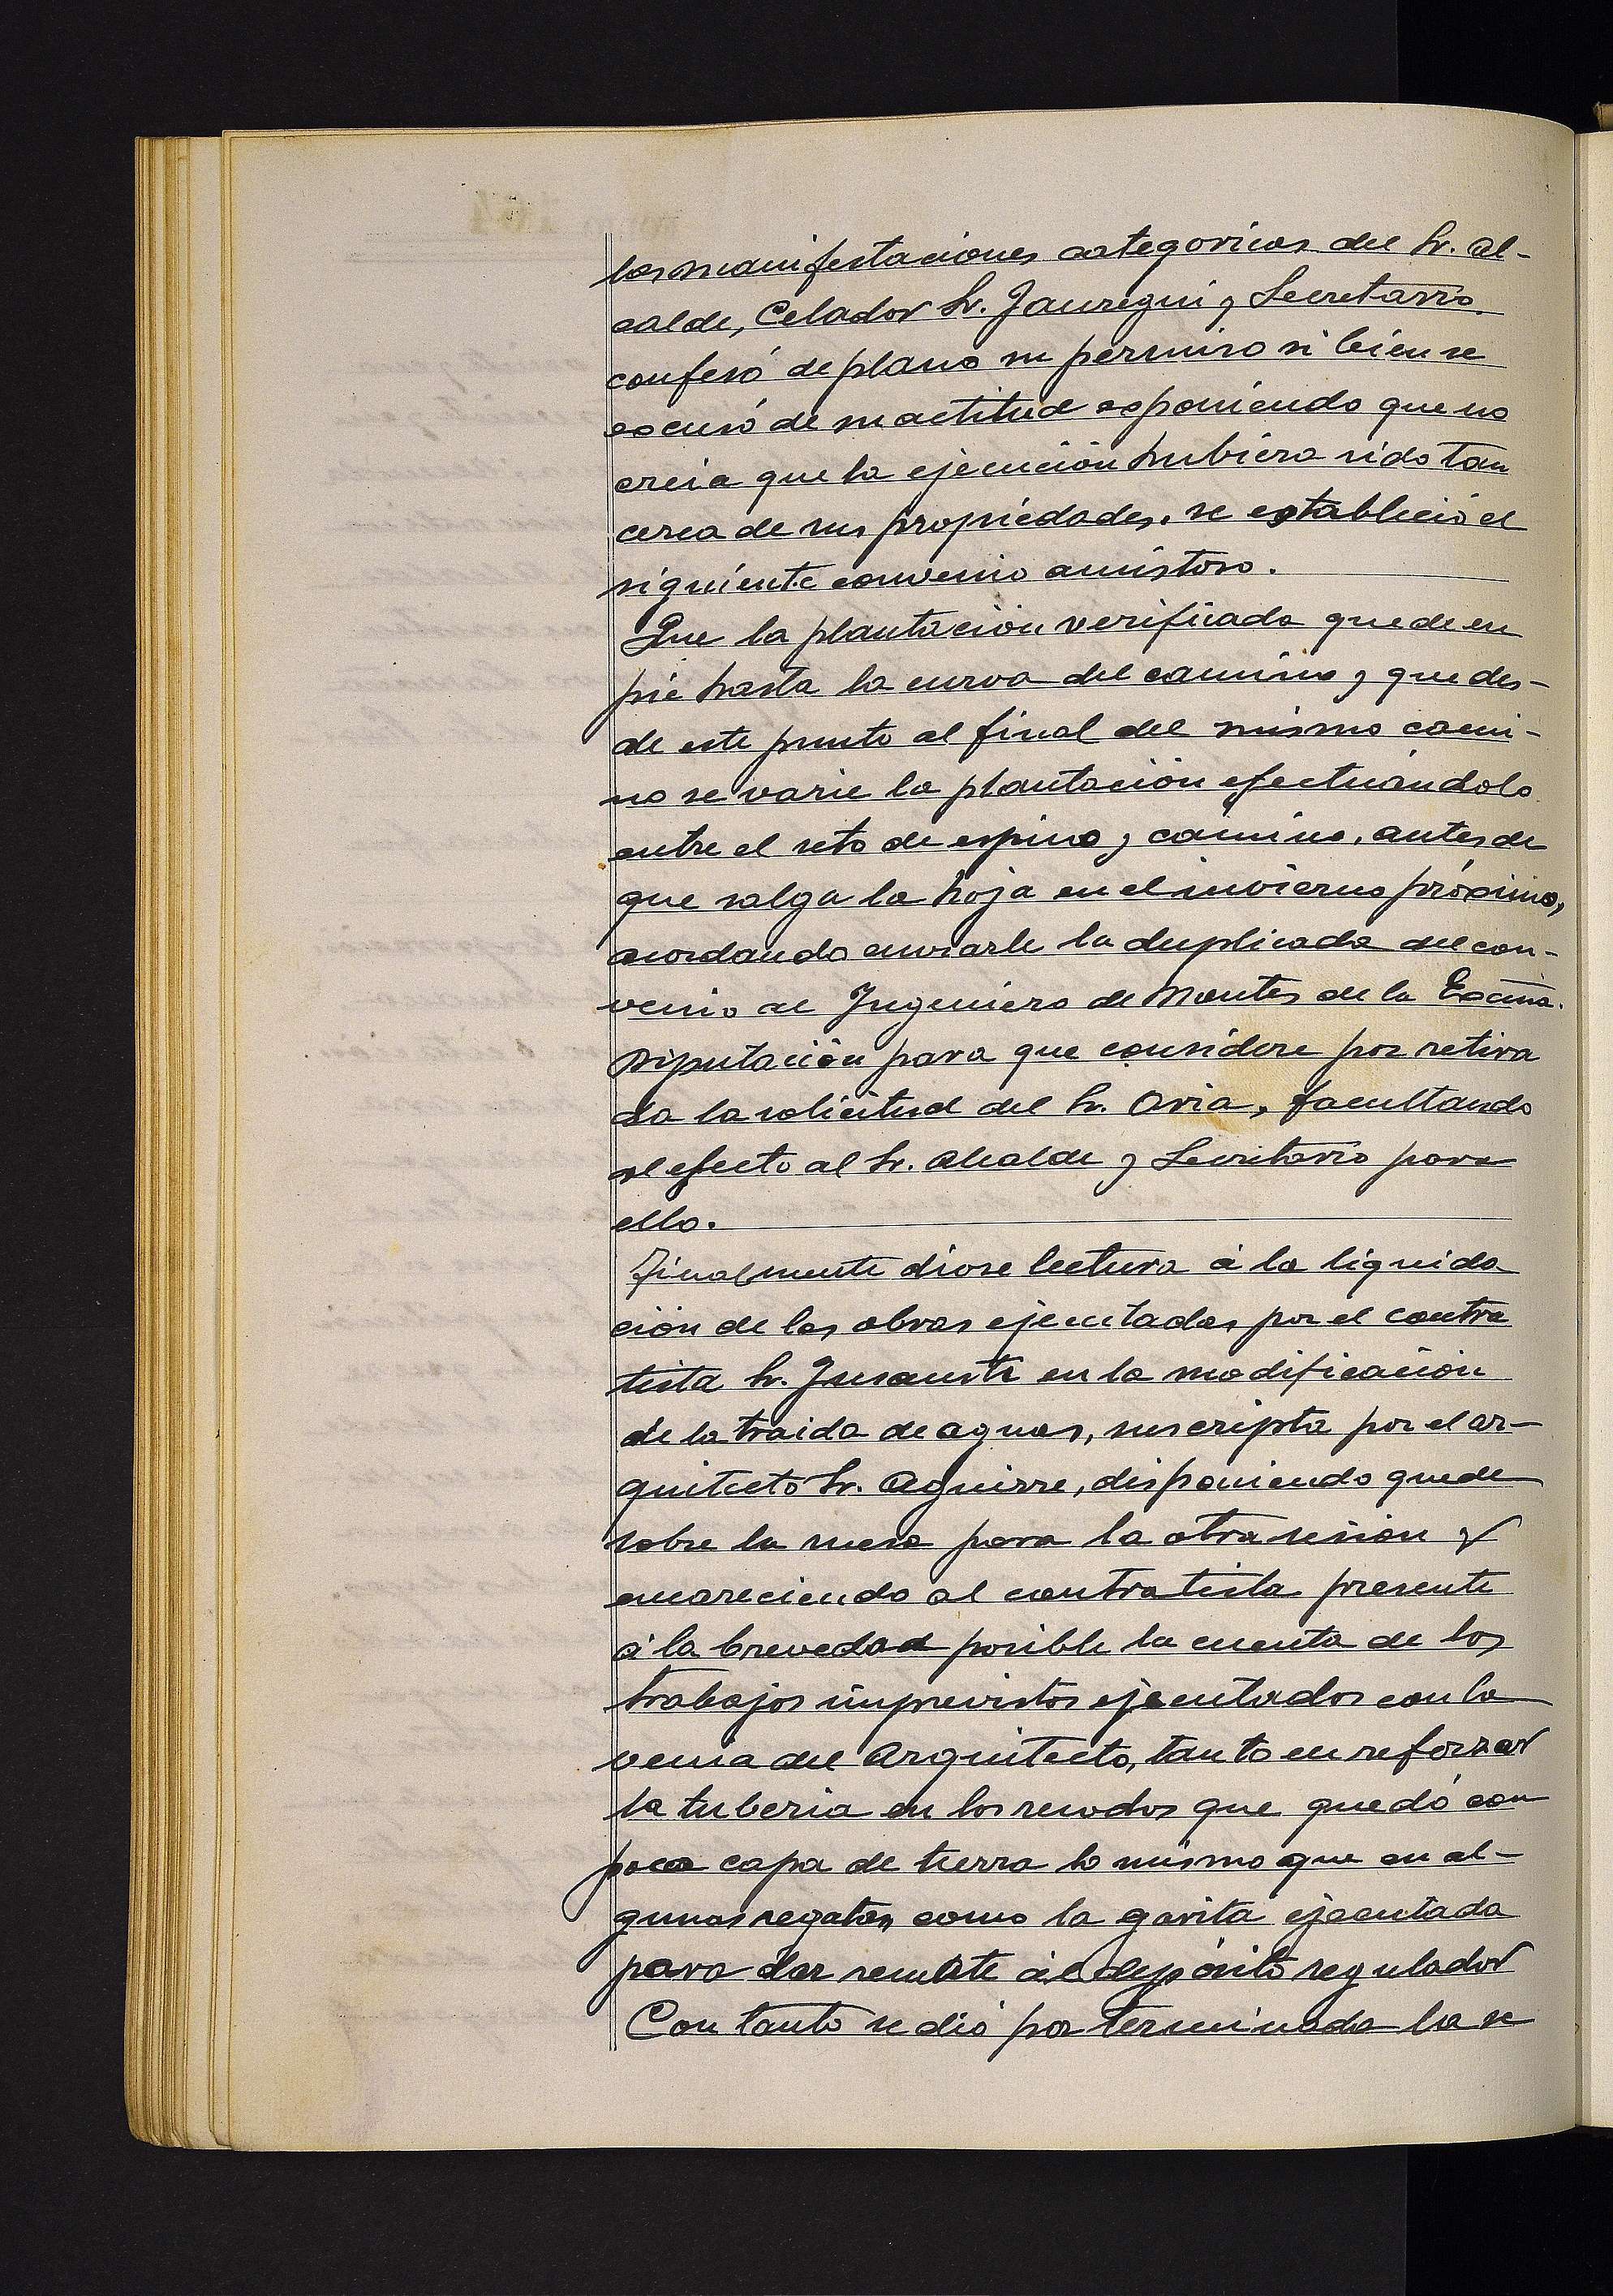 las manifestaciones categoricas del Sr. Al-
calde, Celador Sr. Jauregui y Secretario,
confesó de plano su permiso si bien se
escusó de su actitud esponiendo que no
creia que la ejecución hubiera sido tan
cerca de sus propiedades. se estableció el
siguiente convenio amistoso.
Que la plantación verificada quede en
pié hasta la curva del camino y que des-
de este punto al final del mismo cami-
no se varie la plantación efectuándola
entre el seto de espino y camino, antes de
que salga la hoja en el invierno próximo,
acordando enviarle la duplicada del con-
venio al Ingeniero de Montes de la Excma.
Diputación para que considere por retira
da la solicitud del Sr. Oria, facultando
al efecto al Sr. Alcalde y Secretario para
ello.
Finalmente diose lectura á la liquida
ción de las obras ejecutadas por el contra
tista Sr. Insausti en la modificación
de la traida de aguas, suscripta por el ar-
quitecto Sr. Aguirre, disponiendo quede
sobre la mesa para la otra sesión y
encareciendo al contratista presente
á la brevedad posible la cuenta de los
trabajos imprevistos ejecutados con la
venia del Arquitecto, tanto en reforzar
la tuberia en los recodos que quedó con
poca capa de tierra lo mismo que en al-
gunas regatas, como la garita ejecutada
para dar remate al depósito regulador
Con tanto se dió por terminada la se